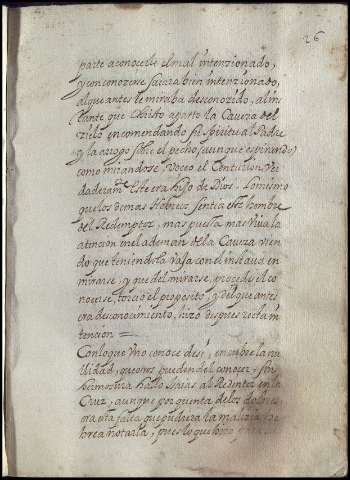 26
parte aconocerle el mal intenzionado,
y con conozerse sacara bien intenzionado,
al que antes le miraba desconozido, al ins
tante que Christo aparto la Caveza del
zielo encomendando su Spiritu al Padre
y la arrojo sobre el pecho, aunque espirando,
como mirandose, voceo el Centurion, Ver
daderamte Este era hijo de Dios. Lo mismo
que los demas Hobreos sentia este hombre
del Redemptor, mas puesta mas viva la
atencion en el ademan de la Caveza vien
do que teniendola vaja con el inclavo en
mirarse, y que del mirarse, procedio el co
nocerse, torcio el proposito, y del que antes
era desconocimiento, hizo despues recta in
tencion =
Con lo que uno conoce de si, encubre la nu
lidad, que otros pueden del conocer, sin
hermosura hallo Isaias al Redentor en la
Cruz, aunque por quenta de los dolores,
era esta falta que pudiera la malizia
hebrea notarla, pues lo que hizo